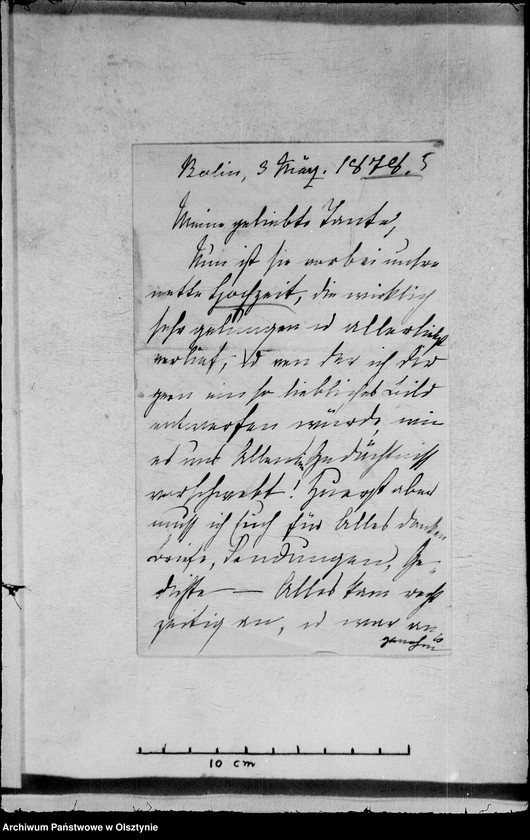 Berlin, 3 März. 1878. 5
Meine geliebte Tante,
Nun ist sie vorbei unsre
nette Hochzeit, die wirklich
sehr gelungen u allerliebst
verlief, u von der ich Dir
gern ein so liebliches Bild
entwerfen würde, wie
es uns Allen im Gedächtniß
vorschwebt! Zuerst aber
muß ich Euch für Alles danken
Briefe, Sendungen, Ge-
dichte — Alles kam recht
zeitig an, u war
10 cm
Archiwum Państwowe w Olsztynie